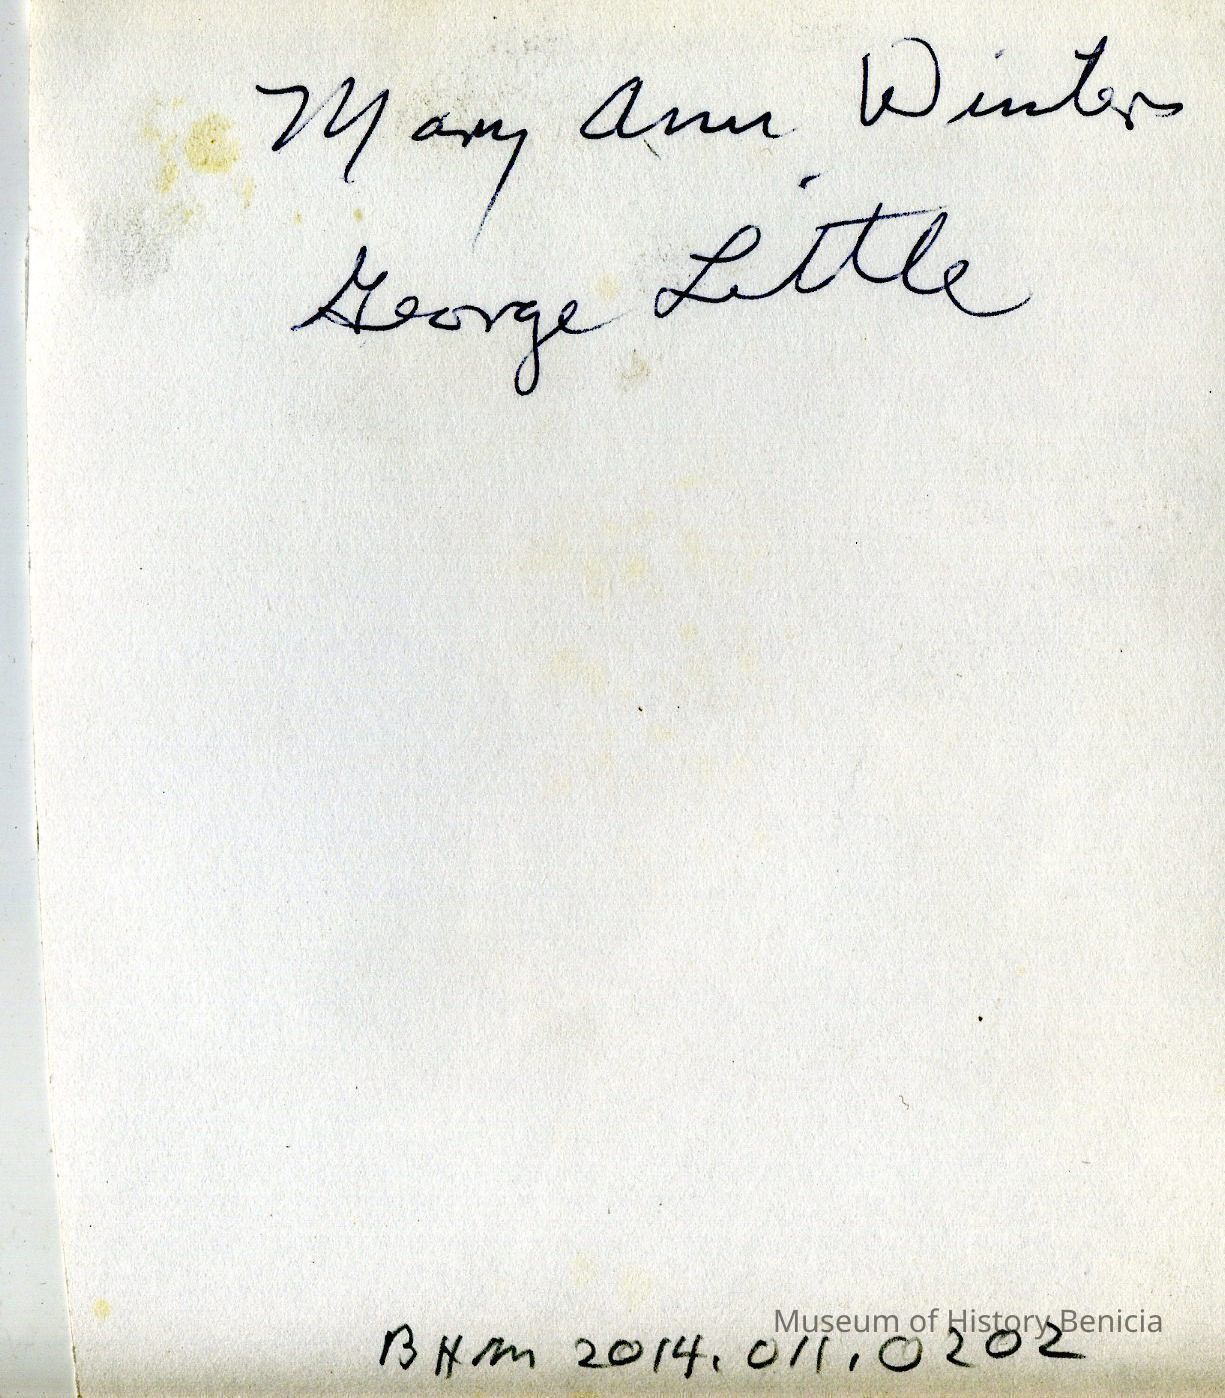 Mary Ann Winters
George Little
Museum of History Benicia
BHM 2014.011.0202